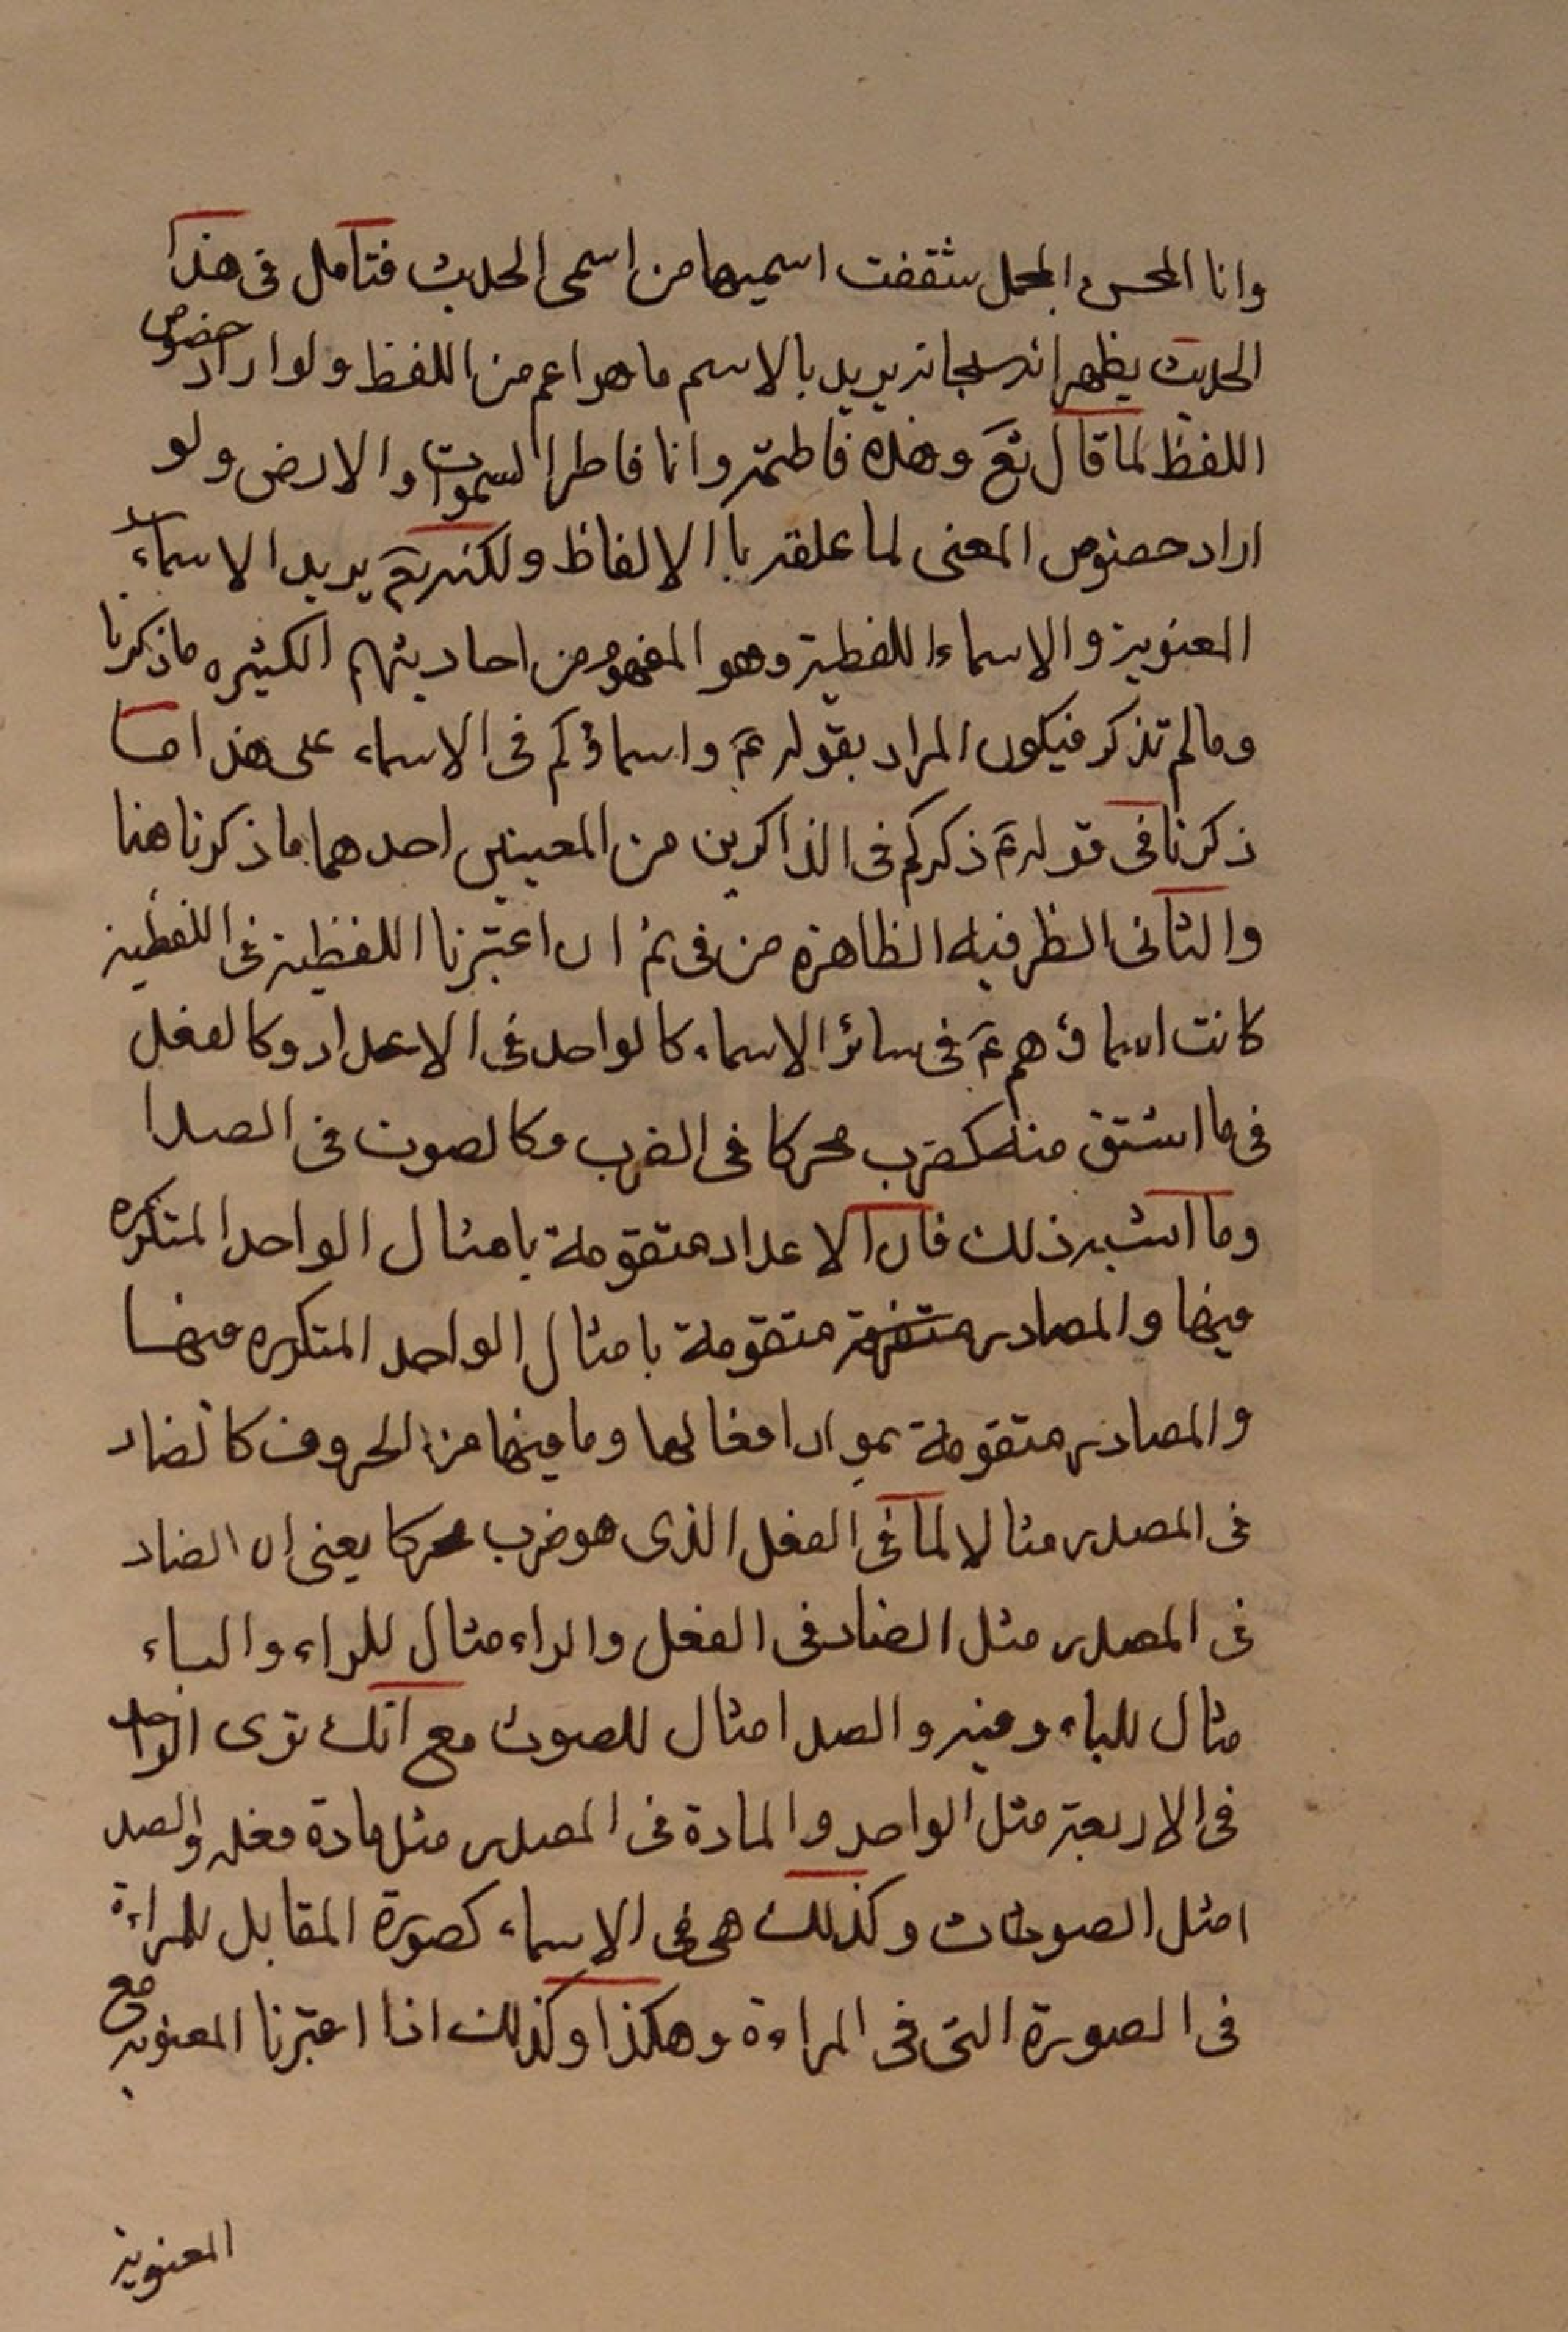 وانا المحسن المجمل شققت اسميهما من اسمى الحديث فتأمل فى هذا
الحديث يظهر انه سبحانه يريد بالاسم ما هو اعم من اللفظ ولو اراد خصوص
اللفظ لما قال تع وهذه فاطمة وانا فاطر السموات والارض ولو
اراد خصوص المعنى لما علقه باالالفاظ ولكنه تع يريد الاسماء
المعنوية والاسماء اللفظية وهو المفهوم من احاديثهم الكثيره ماذكرنا
ومالم تذكر فيكون المراد بقوله ع واسماؤكم فى الاسماء على هذا ما
ذكرنا فى قوله ع ذكركم فى الذاكرين من المعنيين احدهما ما ذكرنا هنا
والثانى الظرفيه الظاهرة من فى ثم ان اعتبرنا اللفظية فى اللفظية
كانت اسماؤهم ع فى سائر الاسماء كالواحد فى الاعداد وكالفعل
فى ما اشتق منه كضرب محركا فى الضرب وكالصوت فى الصدا
وما اشبه ذلك فان الاعداد متقومة بامثال الواحد المتكره
فيها والمصادر متقومة بامثال الواحد المتكره فيها
والمصادر متقومة بمواد افعالها وما فيها من الحروف كالضاد
فى المصدر مثالا لما فى الفعل الذى هو ضرب محركا يعنى ان الضاد
فى المصدر مثل الضاد فى الفعل والراء مثال للراء والباء
مثال للباء وفيه والصدا مثال للصوت مع انك ترى الواحد
فى الاربعة مثل الواحد والمادة فى المصدر مثل مادة فعله والصد
امثل الصوتات وكذلك هى فى الاسماء كصورة المقابل للمراءة
فى الصورة التى فى المراءة وهكذا وكذلك اذا اعتبرنا المعنوية مع
المعنوية